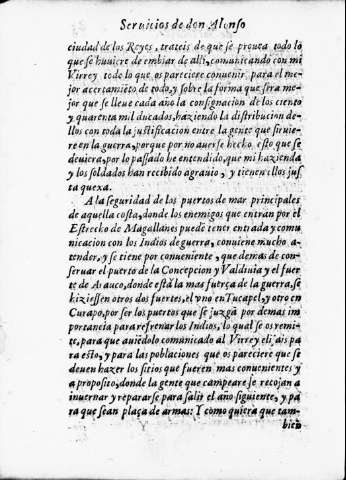 Seruicios de don Alonso
ciudad de los Reyes, trateis de que se prouea todo lo
que se huuiere de embiar de alli, comunicando con mi
Virrey todo lo que os pareciere conuenir, para el me-
jor acertamiẽto de todo, y sobre la forma que sera me-
jor que se lleue cada año la consignacion de los ciento
y quarenta mil ducados, haziendo la distribucion de-
llos con toda la justificacion entre la gente que siruie-
re en la guerra, porque por no auerse hecho esto que se
deuiera, por lo passado he entendido, que mi hazienda
y los soldados han recibido agrauio, y tienen ellos jus
ta quexa.
A la seguridad de los puertos de mar principales
de aquella costa, donde los enemigos que entran por el
Estrecho de Magallanes puedẽ tener entrada y comu
nicacion con los Indios de guerra, conuiene mucho a-
tender, y se tiene por conueniente, que demas de con-
seruar el puerto de la Concepcion y Valdiuia y el fuer
te de Arauco, donde està la mas fuerça de la guerra, se
hiziessen otros dos fuertes, el vno en Tucapel, y otro en
Curapo, por ser los puertos que se juzgã por de mas im
portancia para refrenar los Indios, lo qual se os remi-
te, para que auiẽdolo comunicado al Virrey elijais pa
ra esto, y para las poblaciones que os pareciere que se
deuen hazer los sitios que fueren mas conuenientes y
a proposito, donde la gente que campeare se recoja a
inuernar y repararse para salir el año siguiente, y pa
ra que sean plaça de armas: Y como quiera que tam-
bien